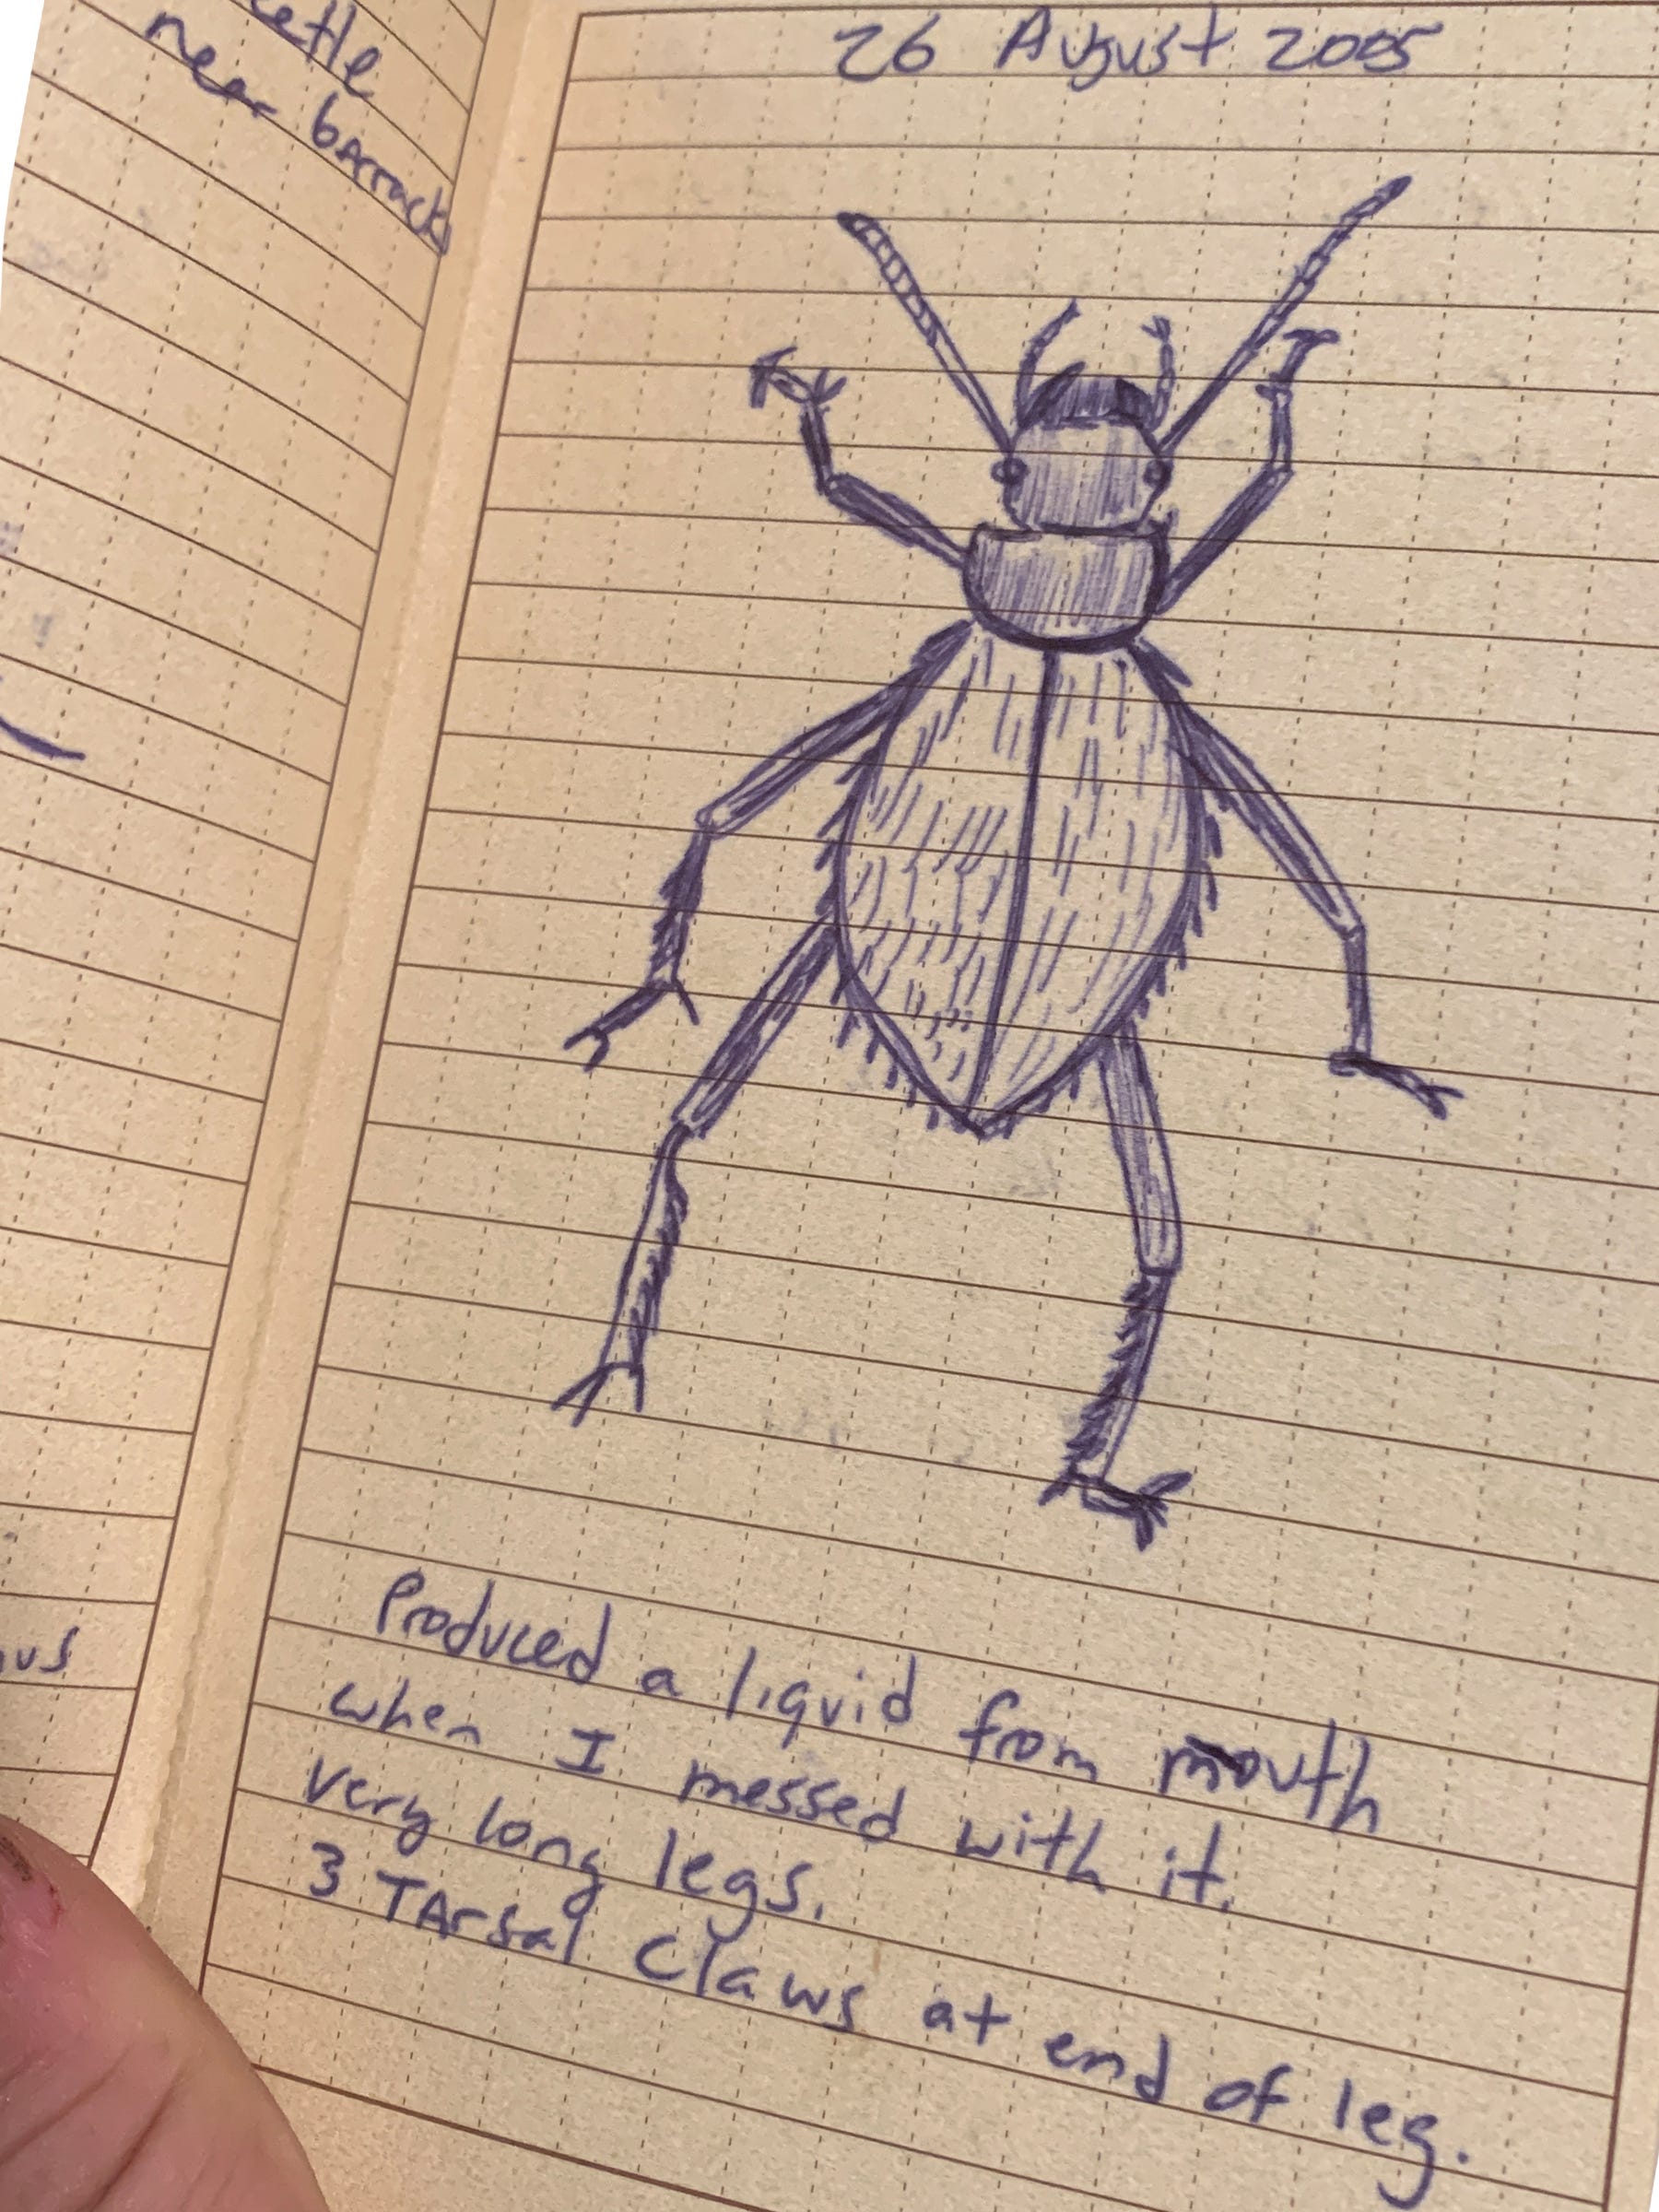 near barracks
26 August 2005
Produced a liquid from mouth
when I messed with it.
Very long legs.
3 TArsal Claws at end of leg.